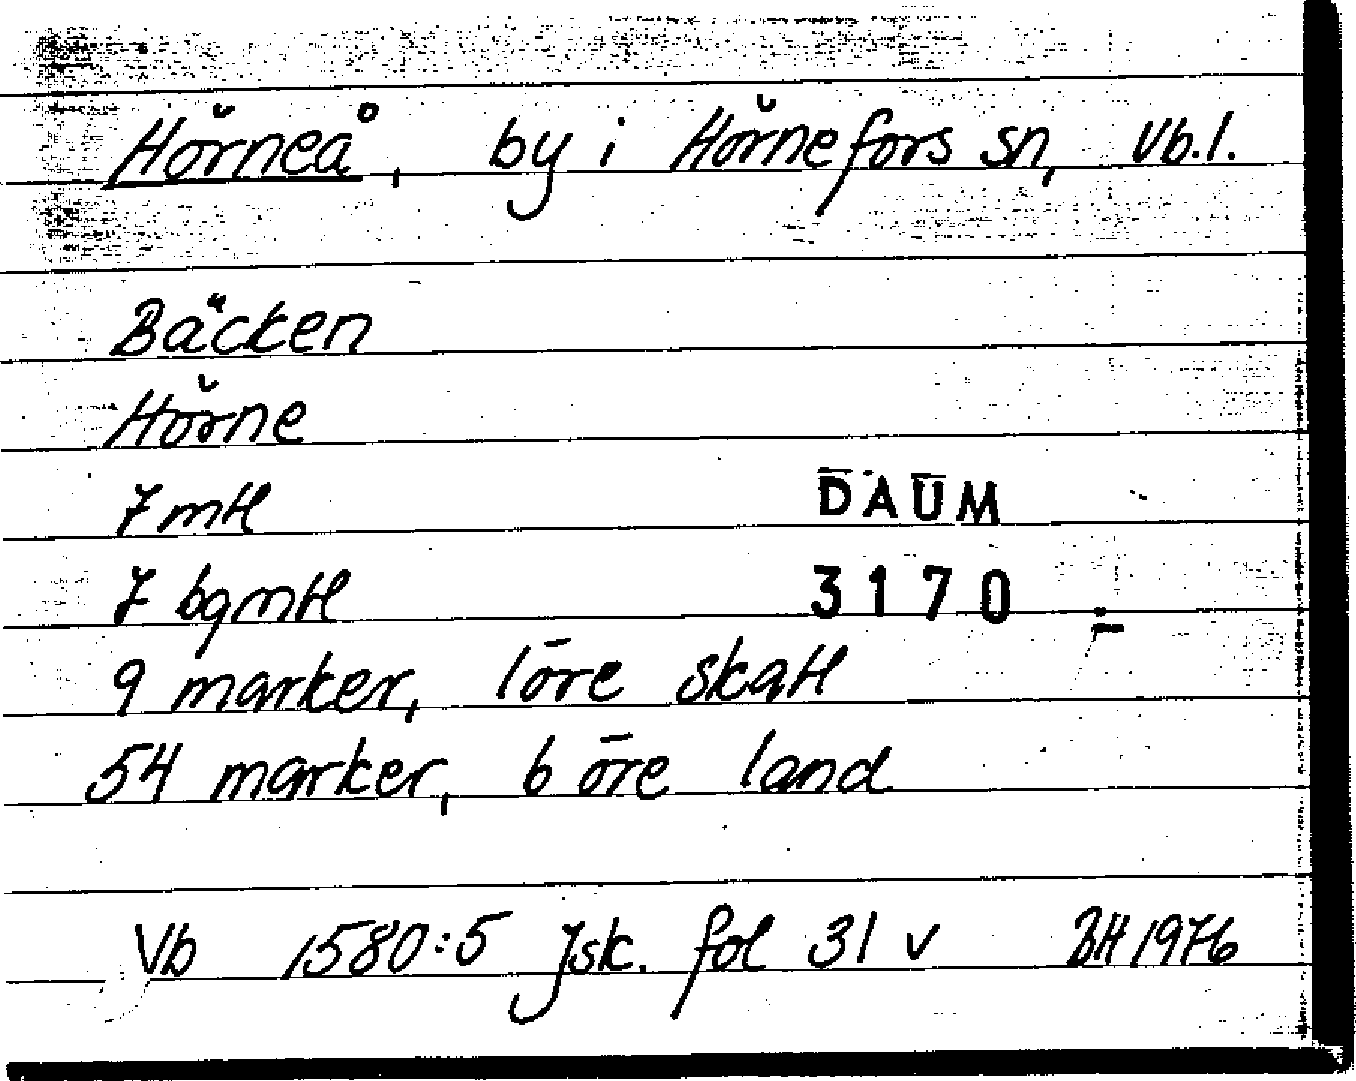 Hörneå, by i Hörnefors sn, Vb.l.
Bäcken
Hörne
7 mtl
DAUM
7 bgmtl
3170
9 marker, 1 öre skatt
54 marker, 6 öre land
Vb 1580:5 Jsk. fol 31 v BH 1976